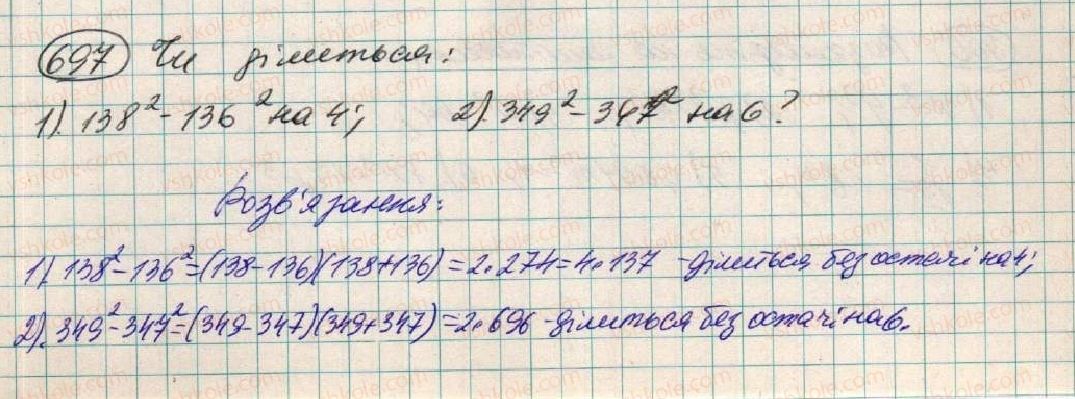 697 Чи ділиться:
1). 138² - 136² на 4; 2). 349² - 347² на 6?
Розв'язання:
1). 138² - 136² = (138 - 136)(138 + 136) = 2 • 274 = 4 • 137 - ділиться без остачі на 4;
2). 349² - 347² = (349 - 347)(349 + 347) = 2 • 696 - ділиться без остачі на 6.